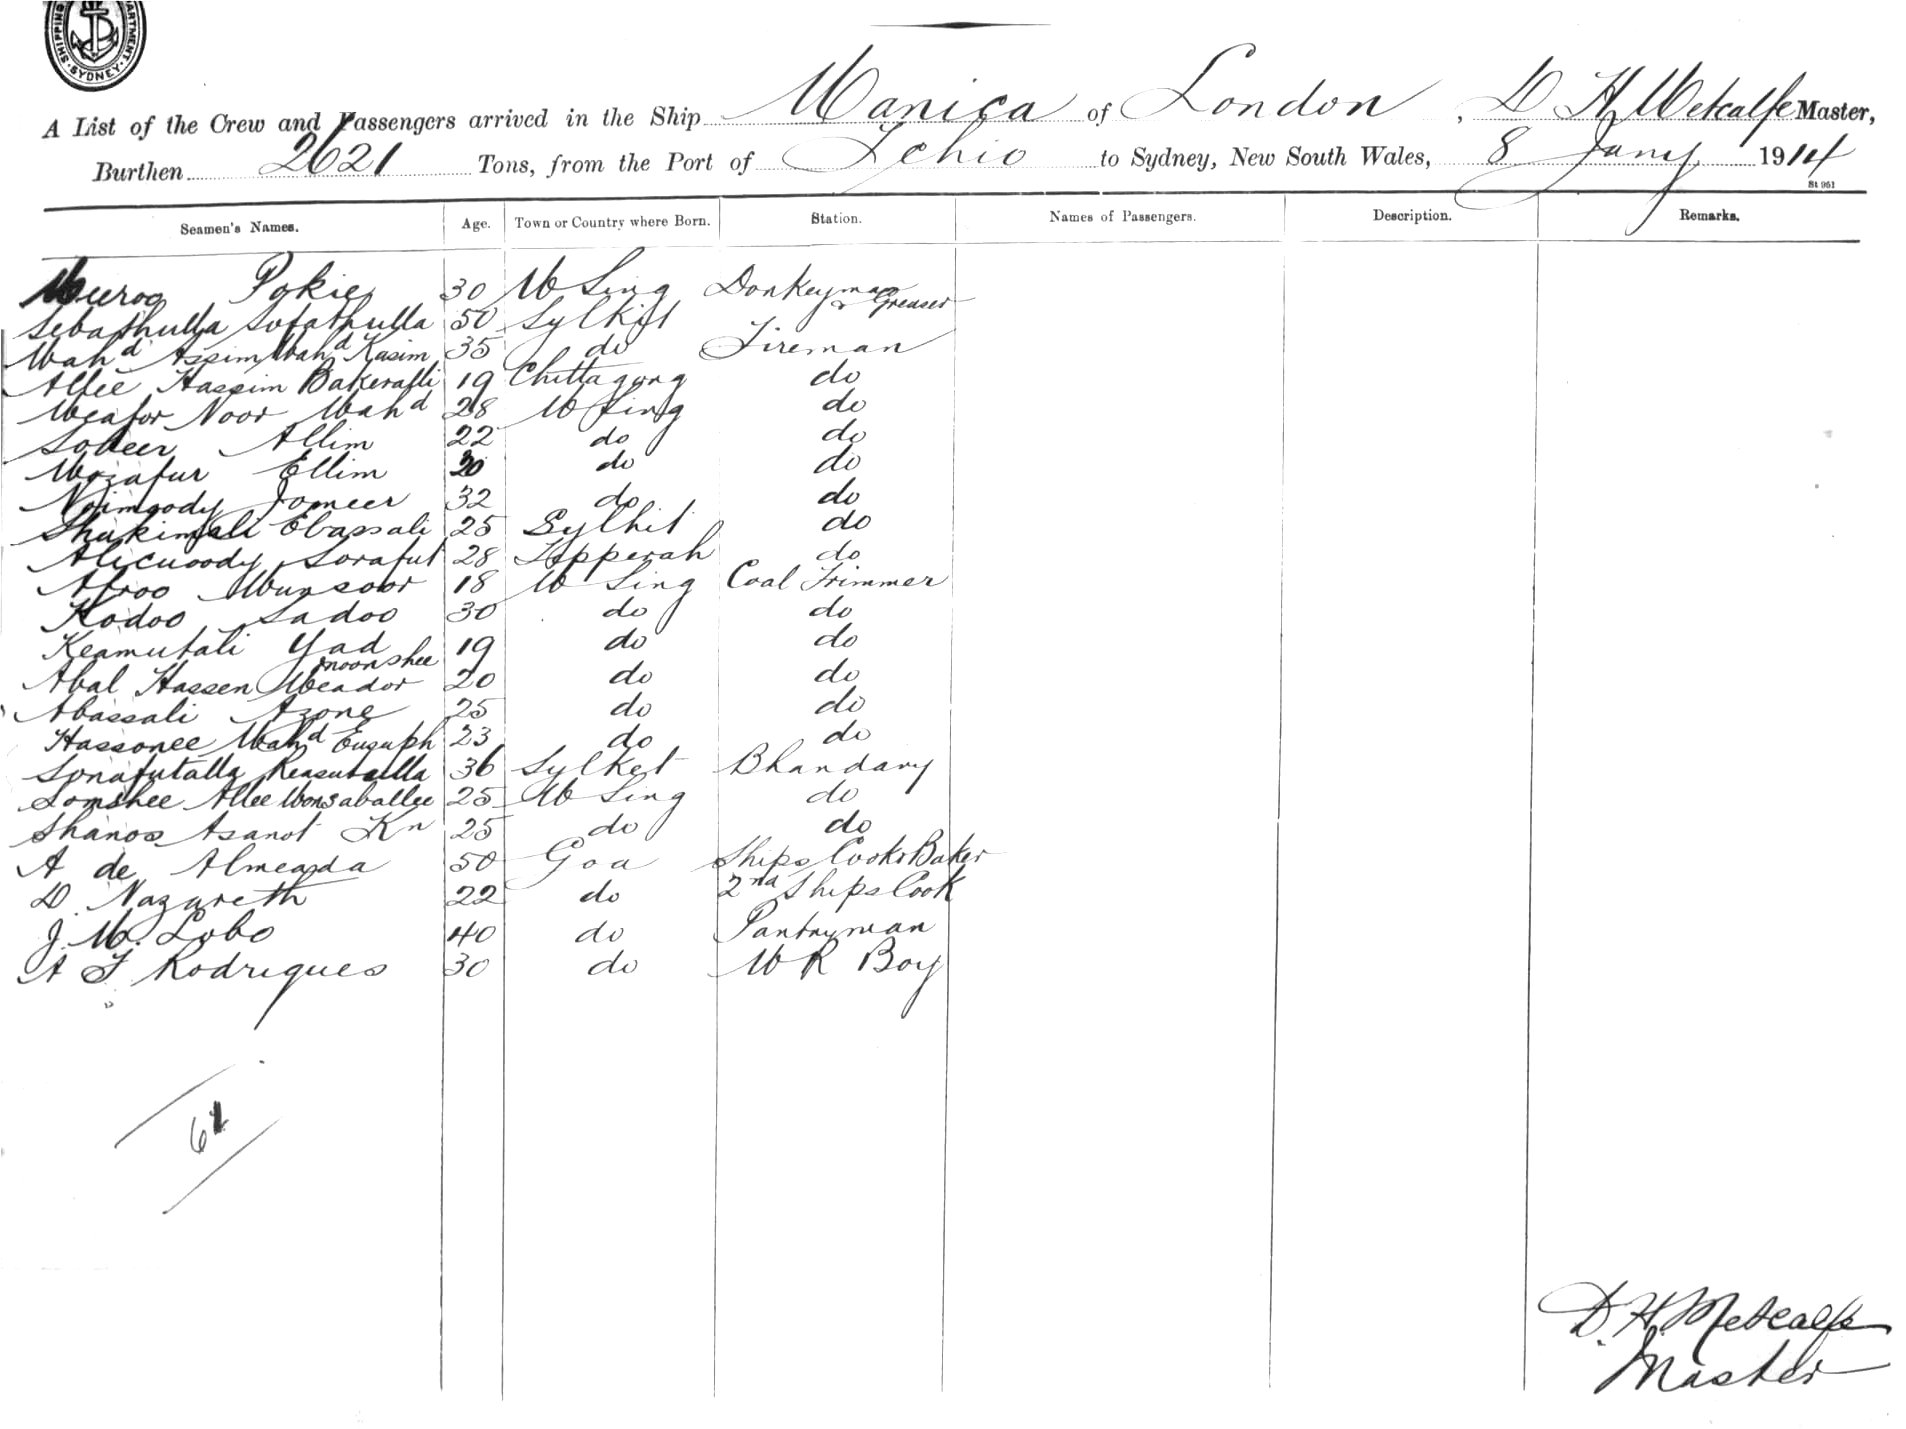 SHIPPING DEPARTMENT SYDNEY
A List of the Crew and Passengers arrived in the Ship Manica of London, D H Metcalfe Master,
Burthen 2621 Tons, from the Port of to Sydney, New South Wales, 8 Jany 1914
St 961
Seamen's Names. Age. Town or Country where Born. Station. Names of Passengers. Description. Remarks.
Pokie 30 M Sing Donkeyman & Greaser
Sebathulla Sofathulla 50 Sylhit
Mahd Assim Mahd Kasim 35 do Fireman
Allee Hassim Bakeralli 19 Chittagong do
Meafor Noor Mahd 28 M Sing do
Sobeer Allim 22 do do
Mozafur Ellim 30 do do
Noimoody Jomeer 32 do do
Shukimali Ebassali 25 Sylhit do
Alicuoody Sorafut 28 Tipperah do
Afroo Munsoor 18 M Sing Coal Trimmer
Kodoo Sadoo 30 do do
Keamutali Yad 19 do do
Abal Hassen Meador moonshee 20 do do
Abassali Azone 25 do do
Hassonee Mahd Eusuph 23 do do
Sonafutalla 36 Sylket Bhandary
Somshee Allee Monsaballee 25 M Sing do
Shanos Asanot Kn 25 do do
A de Almeada 50 Goa Ships Cook & Baker
D. Nazareth 22 do 2nd Ships Cook
J. M. Lobo 40 do Pantryman
A F Rodrigues 30 do M R Boy
D. H. Metcalfe
Master